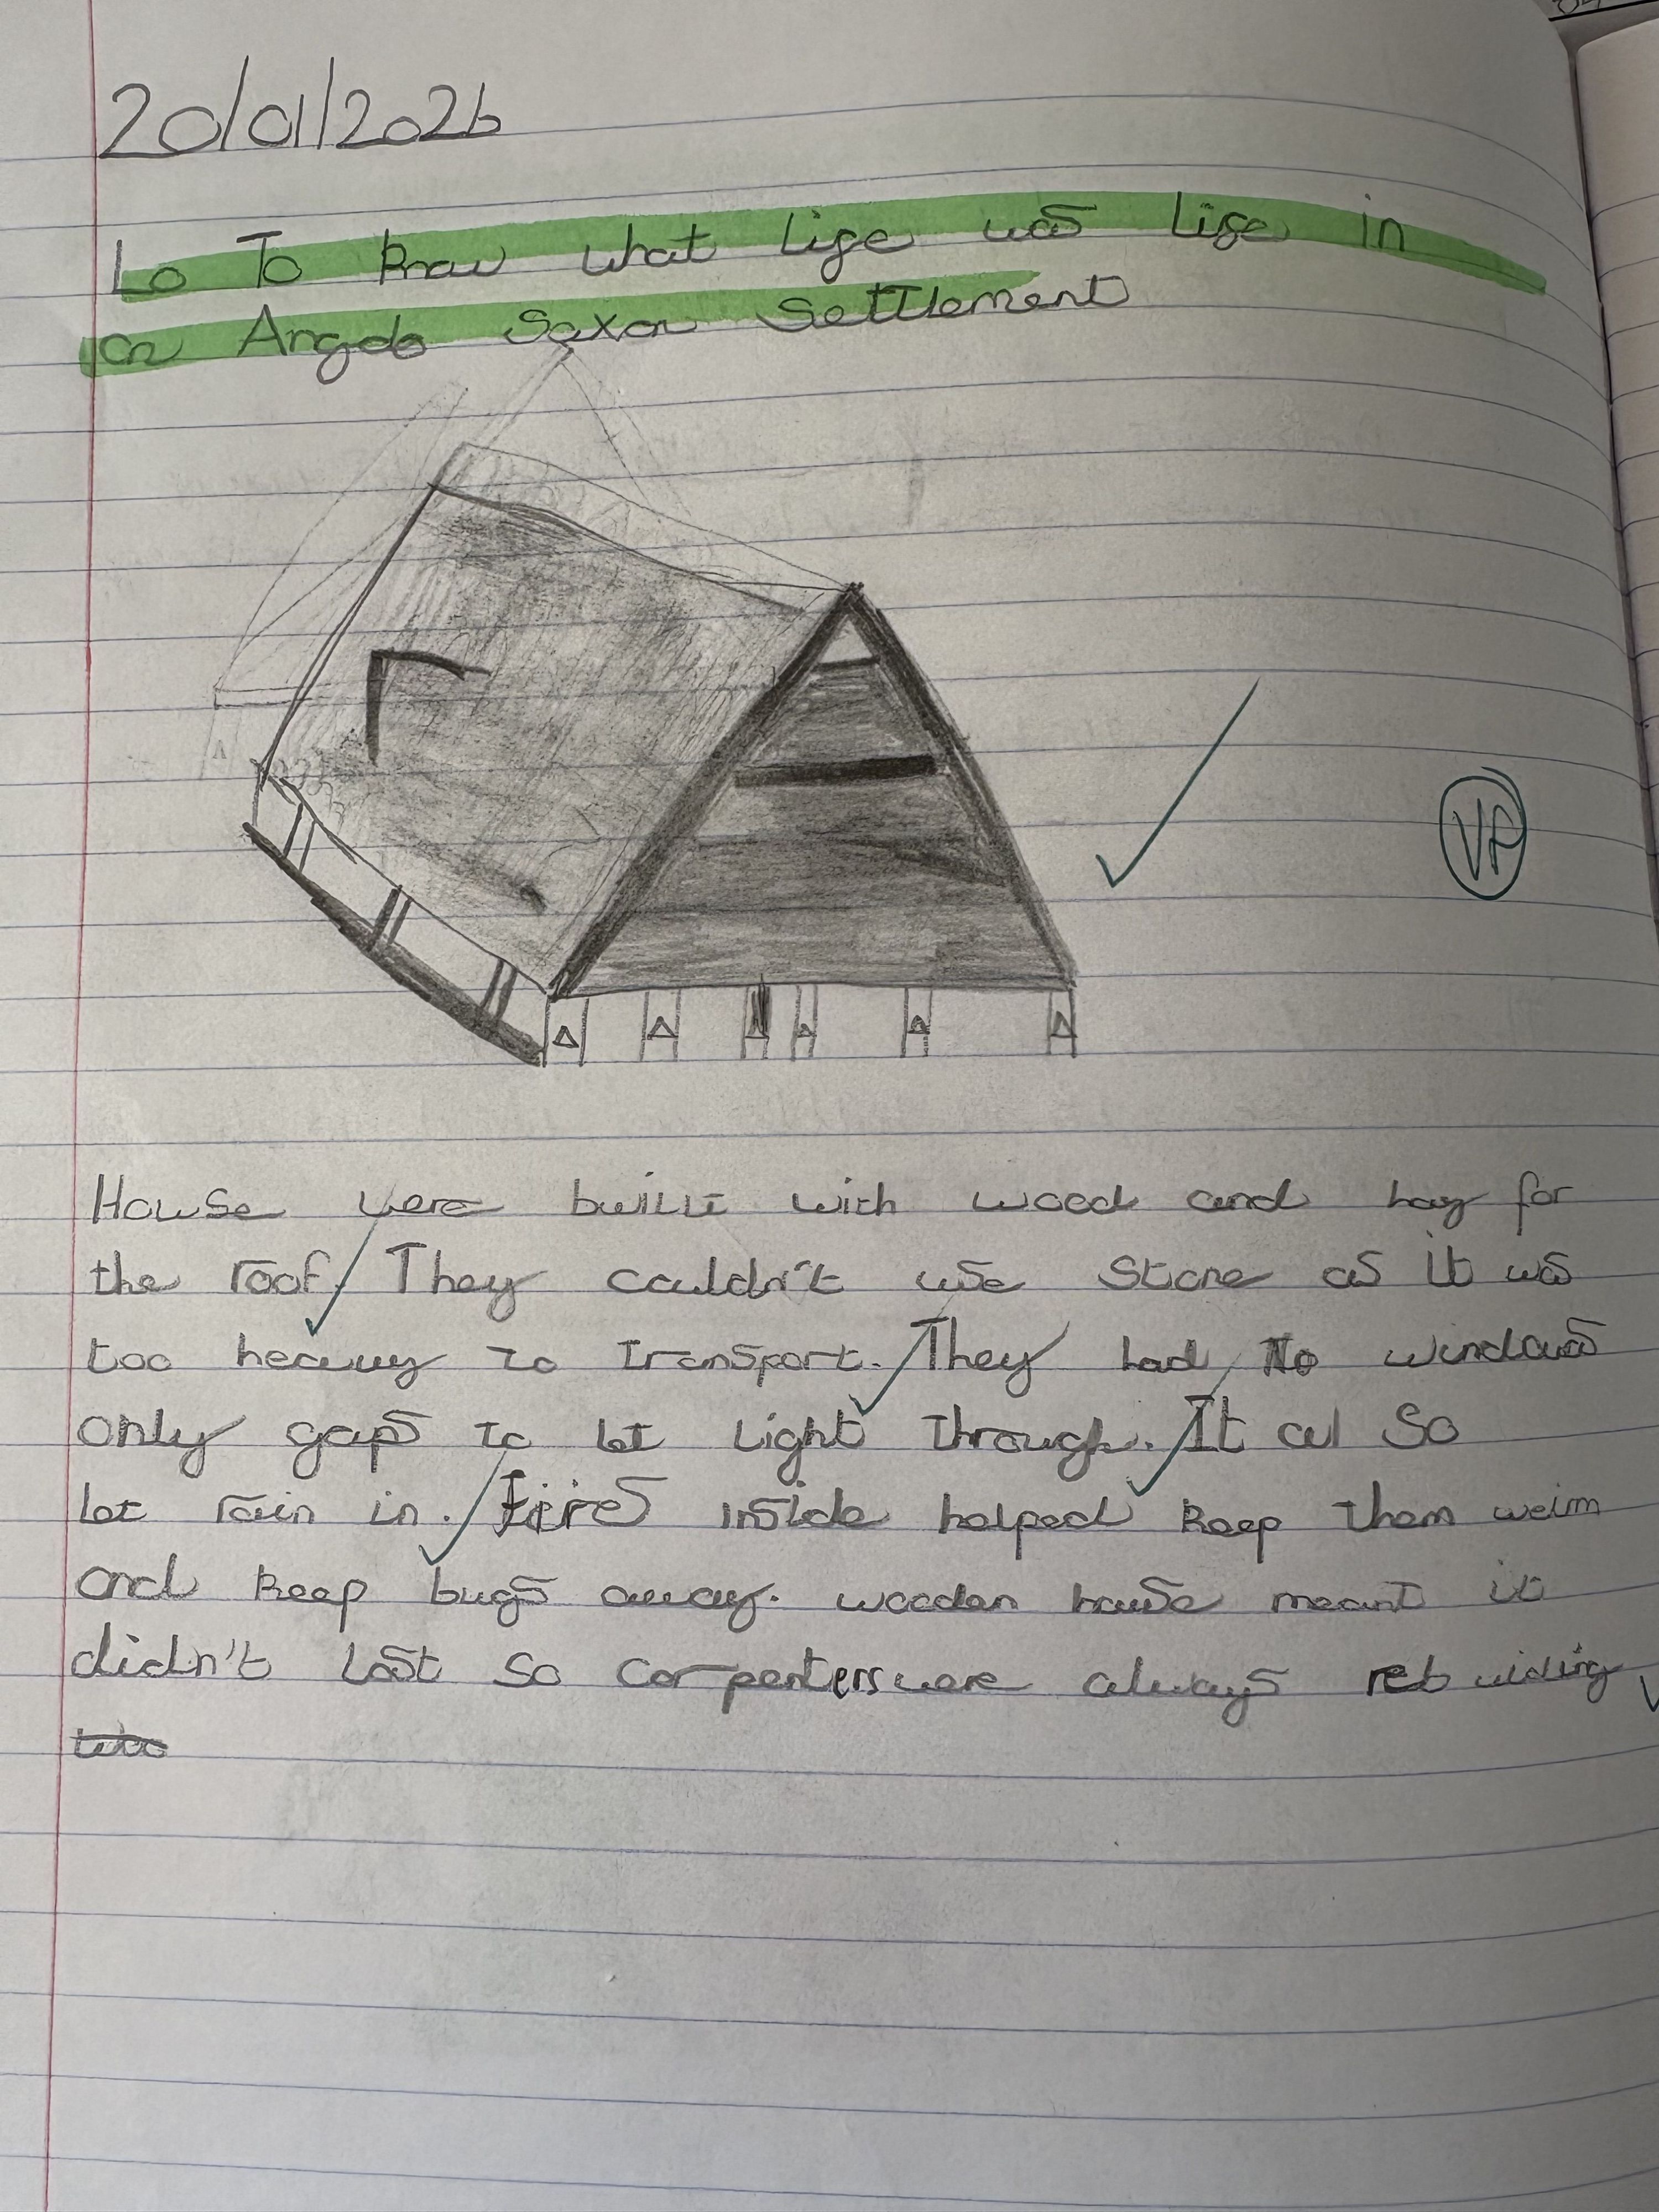 20/01/2026
Lo To know what life was life in
an Anglo Saxon Settlement
VF
House were built with wood and hay for
the roof. They couldn't use stone as it was
too heavy to transport. They had no windows
only gaps to let light through. It al so
let rain in. Fires inside helped keep them weim
and keep bugs away. wooden house meant it
didn't last so carpenters were always rebuiding